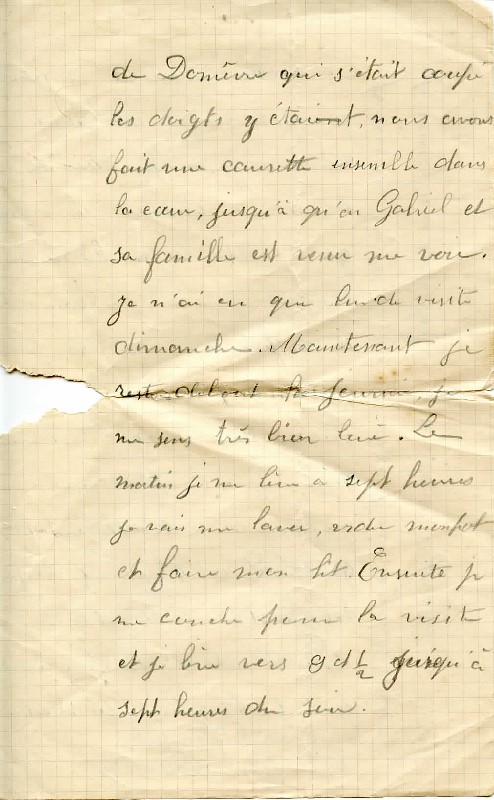 de Domèvre qui s'était coupé
les doigts y était, nous avons
fait une causette ensemble dans
la cour, jusqu'à qu'en Gabriel et
sa famille est venu me voir.
Je n'ai eu que lui de visite
dimanche. Maintenant je
reste debout la journé, je
me sens très bien levé. Le
matin je me lève à sept heures
je vais me laver, vider mon pot
et faire mon lit. Ensuite je
me couche pour la visite
et je lève vers 9 d ½ jusqu'à
sept heures du soir.